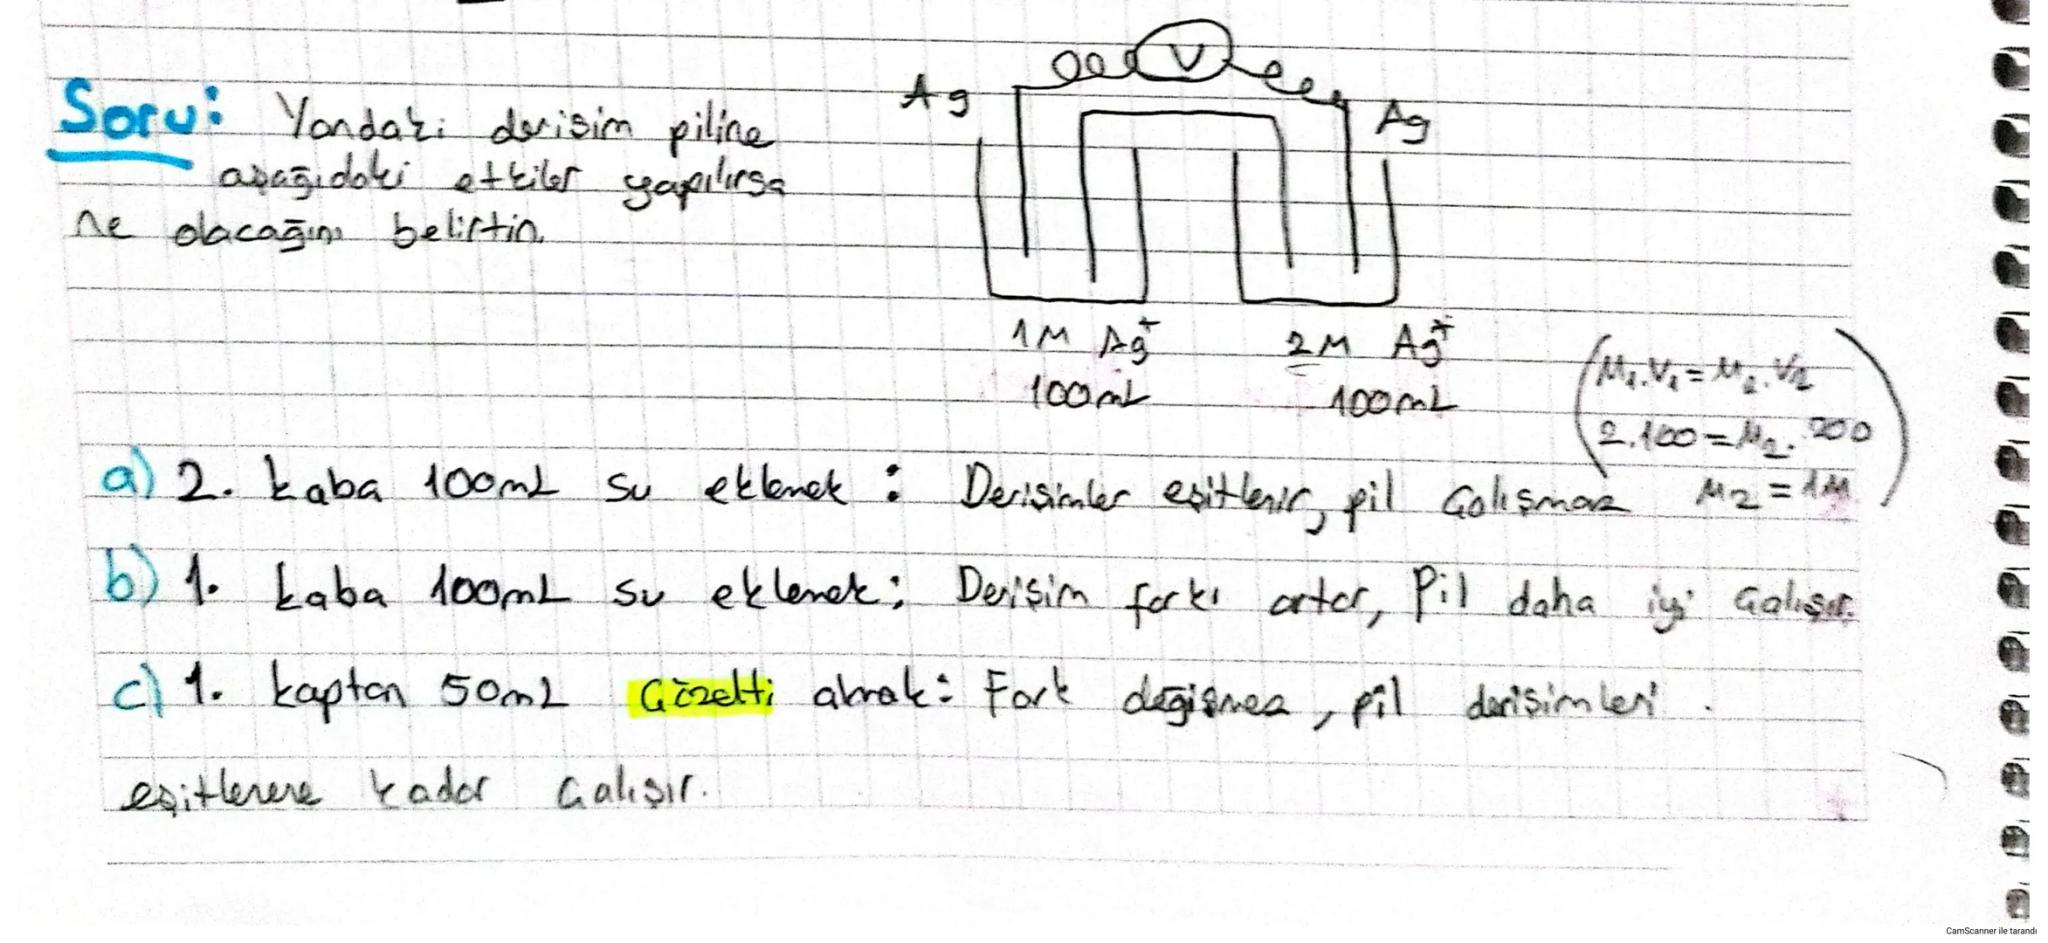 Soru: Yandaki derişim piline
aşağıdaki etkiler yapılırsa
ne olacağını belirtin.
V
Ag
Ag
1M Ag⁺
2M Ag⁺
100mL
100mL
(M₁.V₁=M₂.V₂
2.100=M₂.200
M₂=1M)
a) 2. kaba 100mL su eklemek: Derişimler eşitlenir, pil çalışmaz
b) 1. kaba 100mL su eklemek: Derişim farkı artar, Pil daha iyi çalışır.
c) 1. kaptan 50mL çözelti almak: Fark değişmez, pil derişimleri
eşitlenene kadar çalışır.
CamScanner ile tarandı